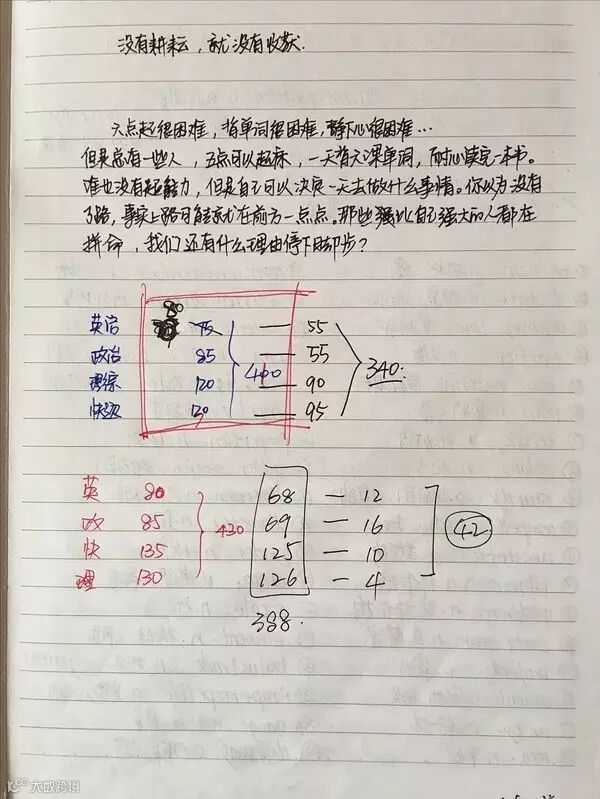 没有耕耘，就没有收获.
六点起很困难，背单词很困难，静下心很困难…
但是总有一些人，五点可以起床，一天背六课单词，耐心读完一本书。
谁也没有超能力，但是自己可以决定一天去做什么事情。你以为没有
了路，事实上路可能就在前方一点点。那些强比自己强大的人都在
拼命，我们还有什么理由停下脚步？
80
英语 75 — 55
政治 85 — 55
理综 120 — 90
130 — 95
400
340.
英 80 68 — 12
政 85 69 — 16
快 135 125 — 10
理 130 126 — 4
430
42
388.
大数跨境